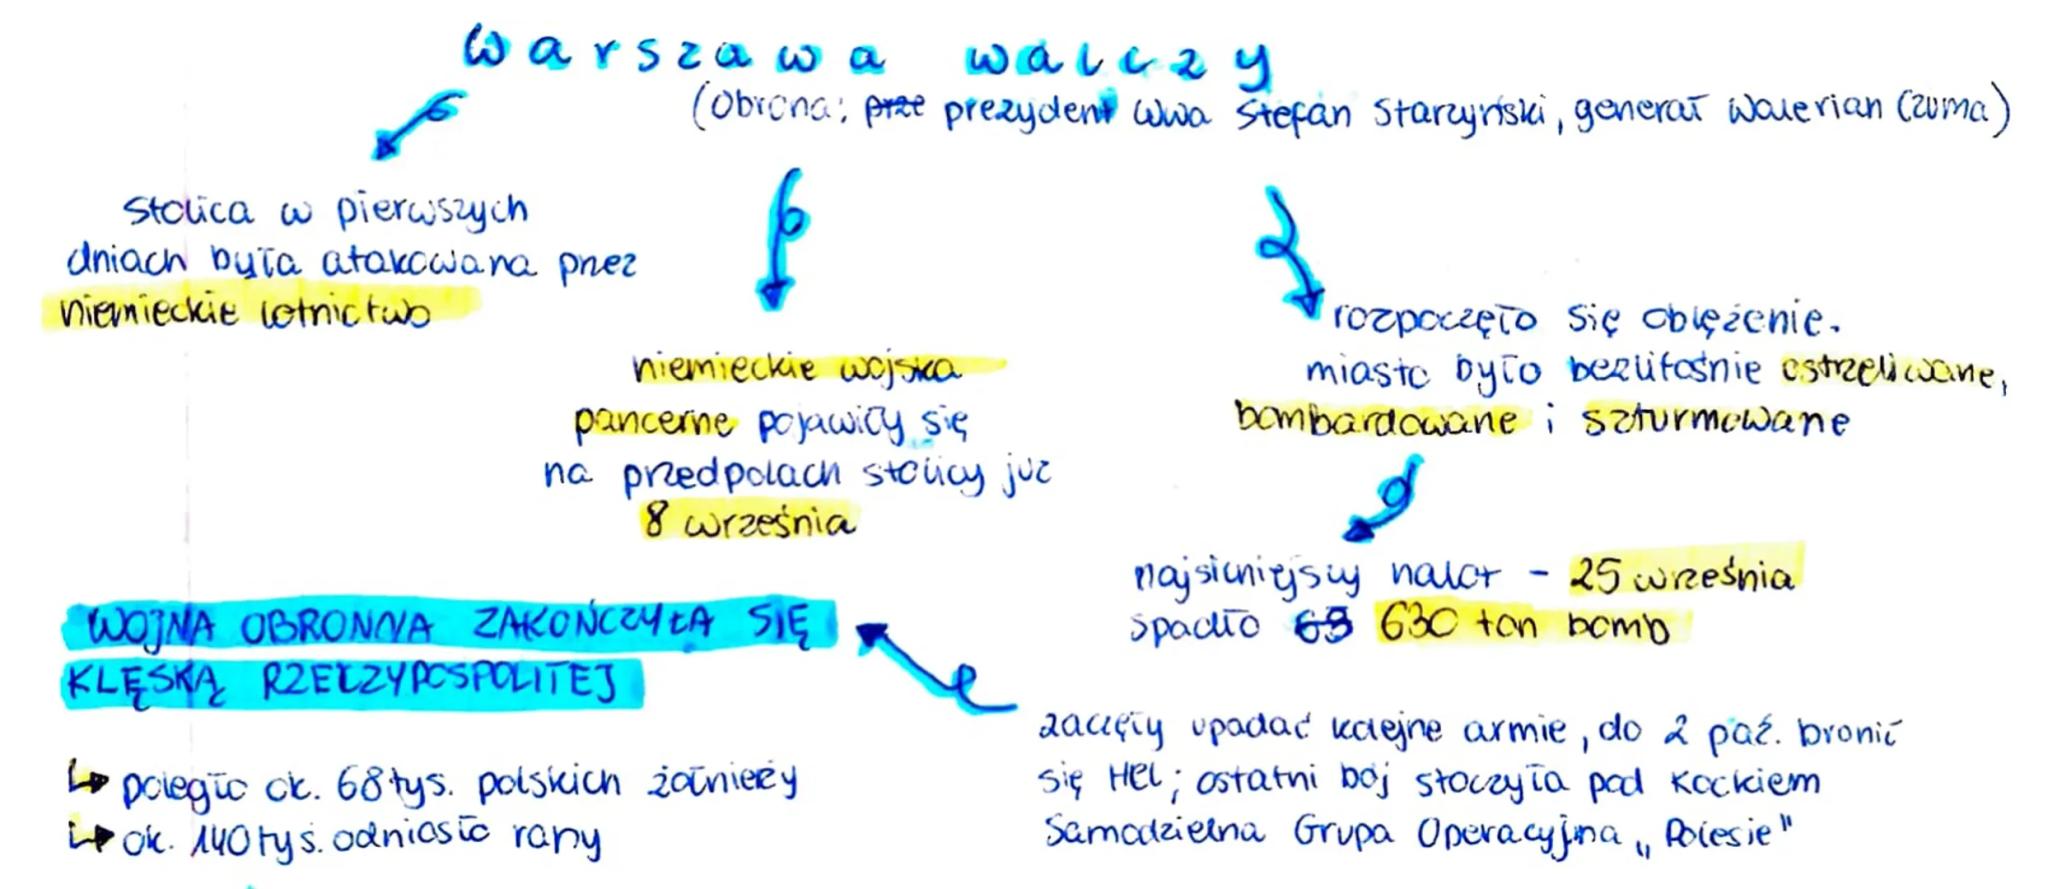 Warszawa walczy
(Obrona: prze prezydent Wwa Stefan Starzyński, generał Walerian Czuma)
Stolica w pierwszych
dniach była atakowana przez
niemieckie lotnictwo
niemieckie wojska
pancerne pojawiły się
na przedpolach stolicy już
8 września
rozpoczęło się oblężenie.
miasto było bezlitośnie ostrzeliwane,
bombardowane i szturmowane
najsilniejszy nalot - 25 września
spadło 63 630 ton bomb
WOJNA OBRONNA ZAKOŃCZYŁA SIĘ
KLĘSKĄ RZECZYPOSPOLITEJ
↳ poległo ok. 68 tys. polskich żołnierzy
↳ ok. 140 tyś. odniosło rany
zaczęły upadać kolejne armie, do 2 paź. bronił
się Hel; ostatni bój stoczyła pod Kockiem
Samodzielna Grupa Operacyjna „Polesie"